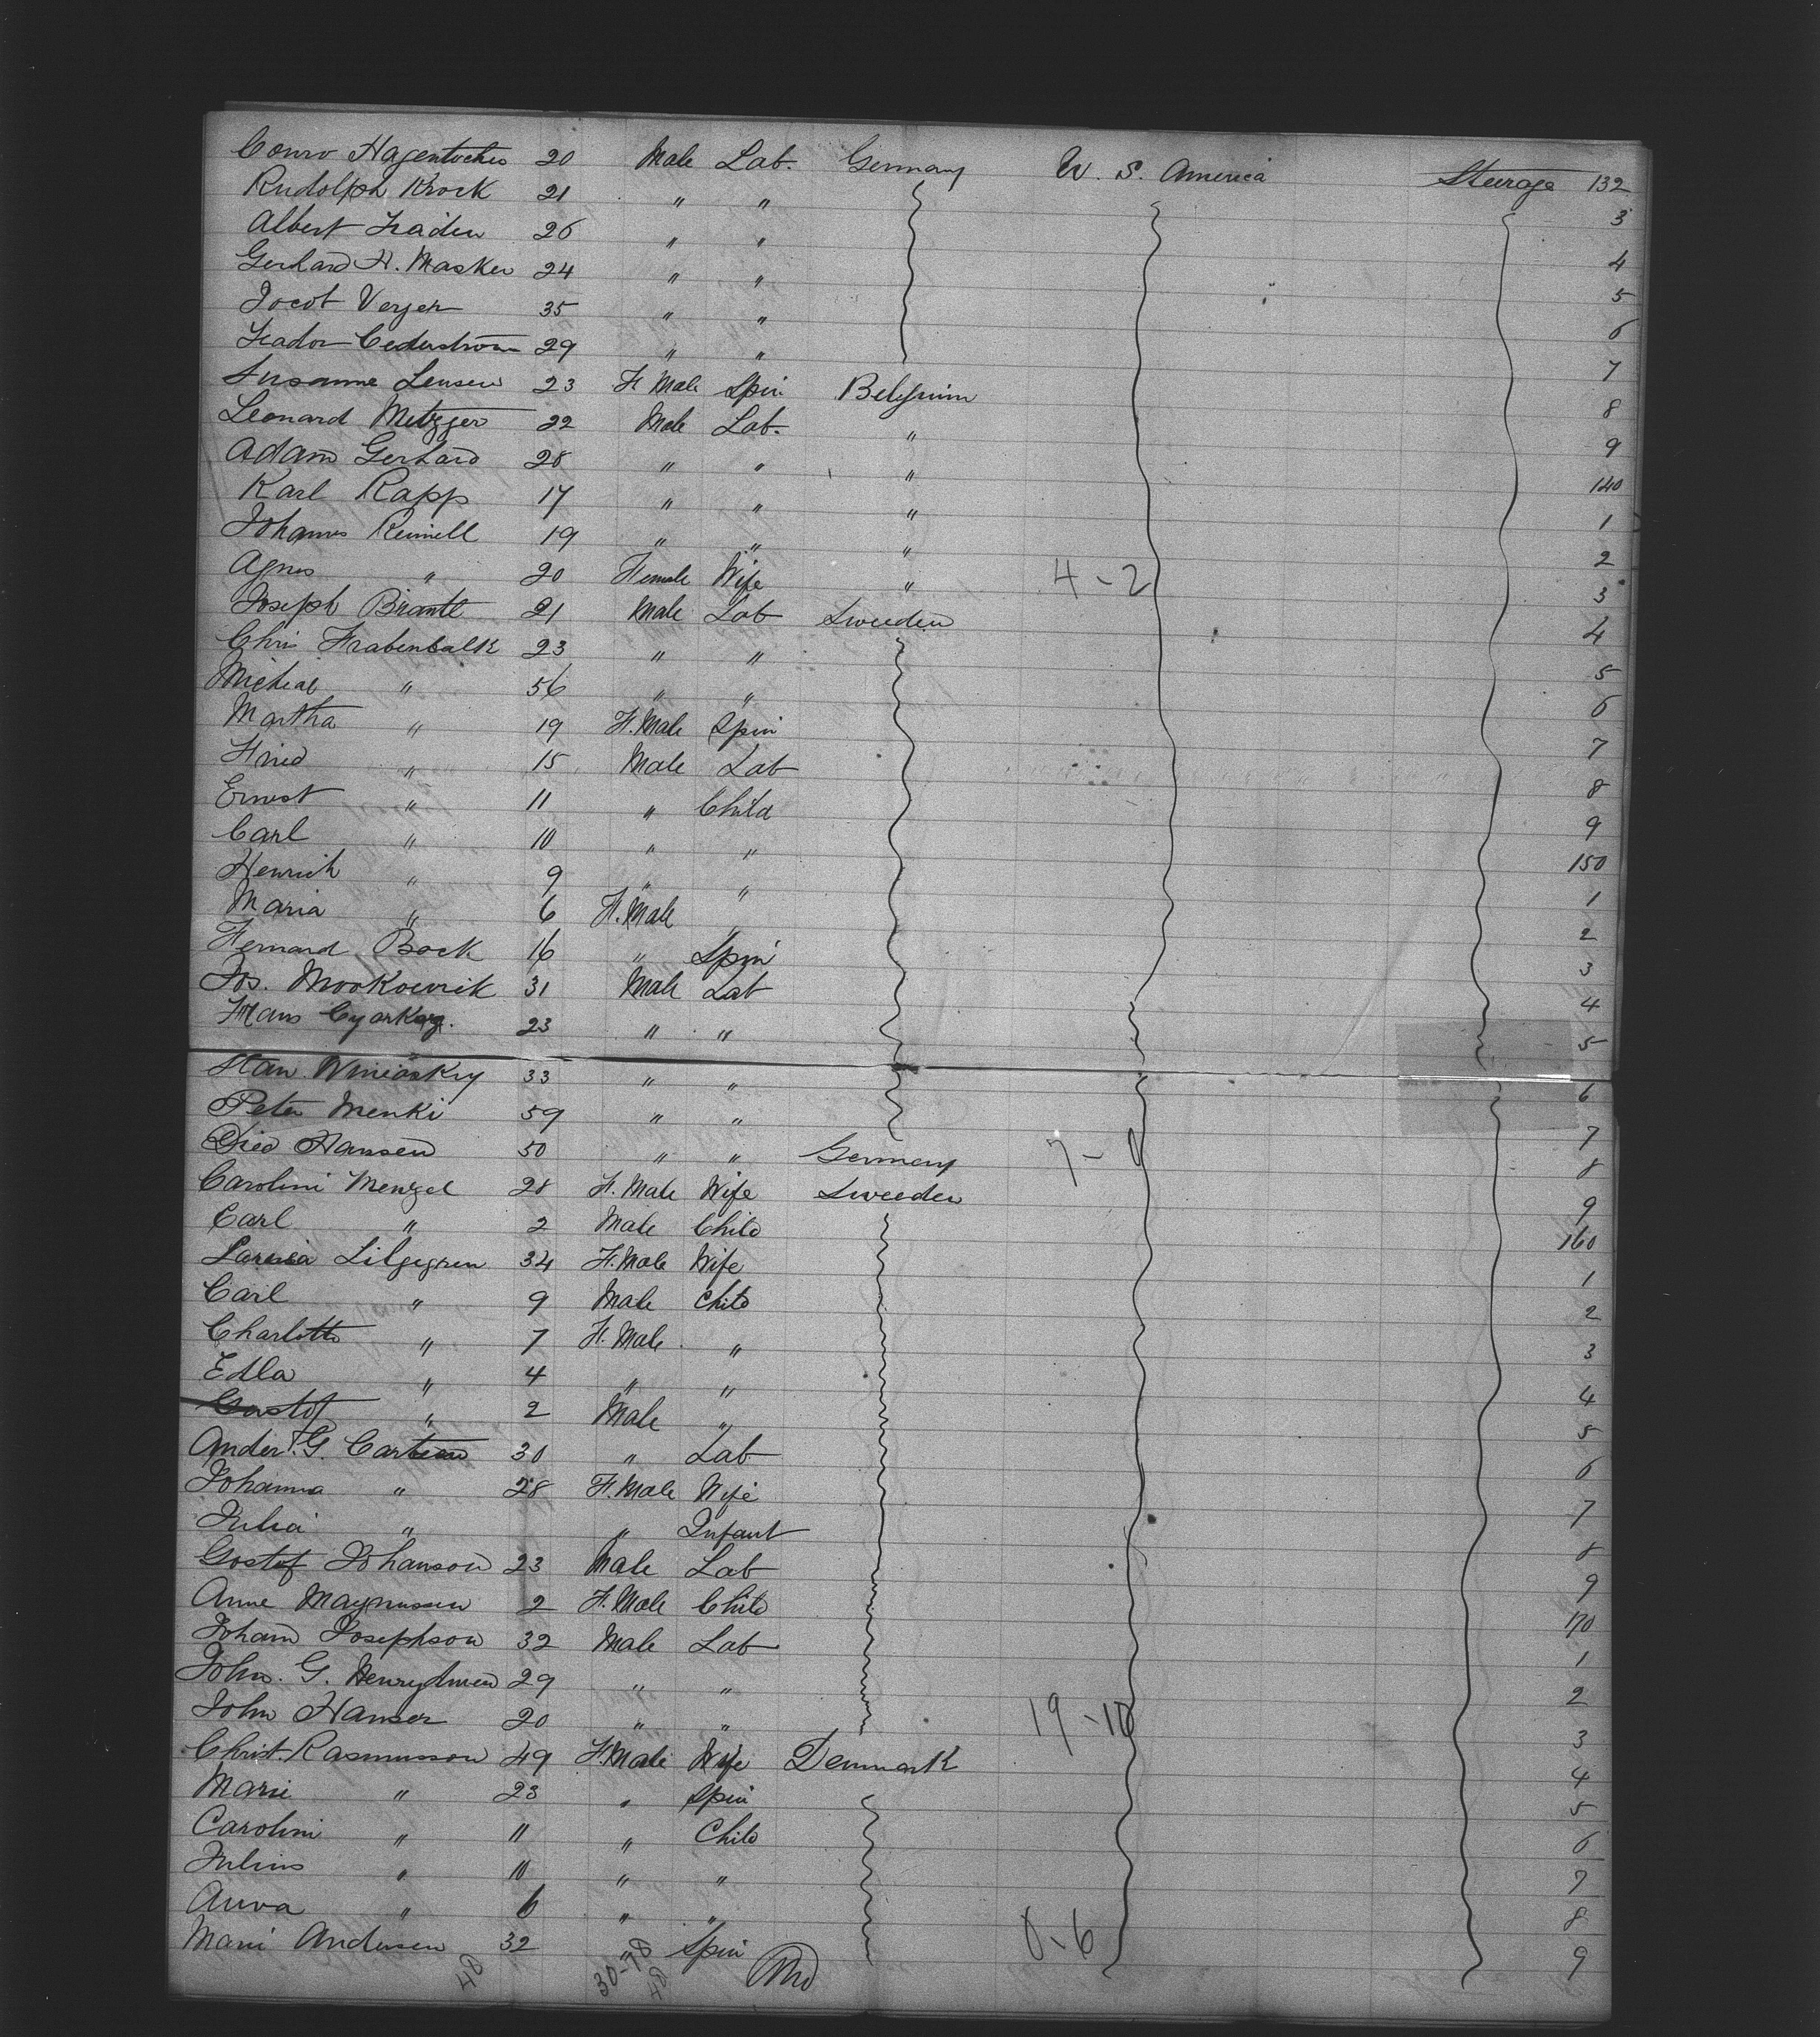 Conrv Hagentocher 20 Male Lab. Germany U. S. America Steerage 132
Rudolph Krock 21 " " 3
Albert 26 " " 4
Gerhard H. Masker 24 " " 5
Jocob Verger 35 " " 6
Isador Cederstrom 29 " " 7
Susanne Lensen 23 F. Male Spin. Belgium 8
Leonard Metzger 22 Male Lab. " 9
Adam Gerhard 28 " " " 140
Karl Rapp 17 " " " 1
Johannes Reimell 19 " " " 2
Agnes " 20 Female Wife " 4-2 3
Joseph Brantt 21 Male Lab Sweeden 4
Chris Frabenbalk 23 " " 5
Micheal " 56 " " 6
Martha " 19 F. Male Spin 7
Fried " 15 Male Lab 8
Ernest " 11 " Child 9
Carl " 10 " " 150
Henrich " 9 " " 1
Maria " 6 F. Male " 2
Fernard Bock 16 " Spin 3
Jos. Mookowrik 31 Male Lab 4
Hans 23 " " 5
Stan Winiaskry 33 " " 6
Peter Menki 59 " " 7
Died Hansen 50 " " Germany 7-0 8
Carolini Menzel 28 F. Male Wife Sweeden 9
Carl " 2 Male Child 160
Lilgegren 34 F. Male Wife 1
Carl " 9 Male Child 2
Charlotte " 7 F. Male " 3
Edla " 4 " " 4
Gostof " 2 Male " 5
Ander. G. 30 " Lab 6
Johanna " 28 F. Male Wife 7
Julia " " Infant 8
Gostof Johanson 23 Male Lab 9
Anne Magnussen 2 F. Male Child 170
Joham Josephson 32 Male Lab 1
John. G. 29 " " 2
John Hanser 20 " " 19-10 3
Christ. Rasmusson 49 F. Male Wife Denmark 4
Marie " 23 " Spin 5
Carolini " 11 " Child 6
Julius " 10 " " 7
Anna " 6 " " 8
Marie Andersen 32 " Spin 0-6 9
48 30-78 48